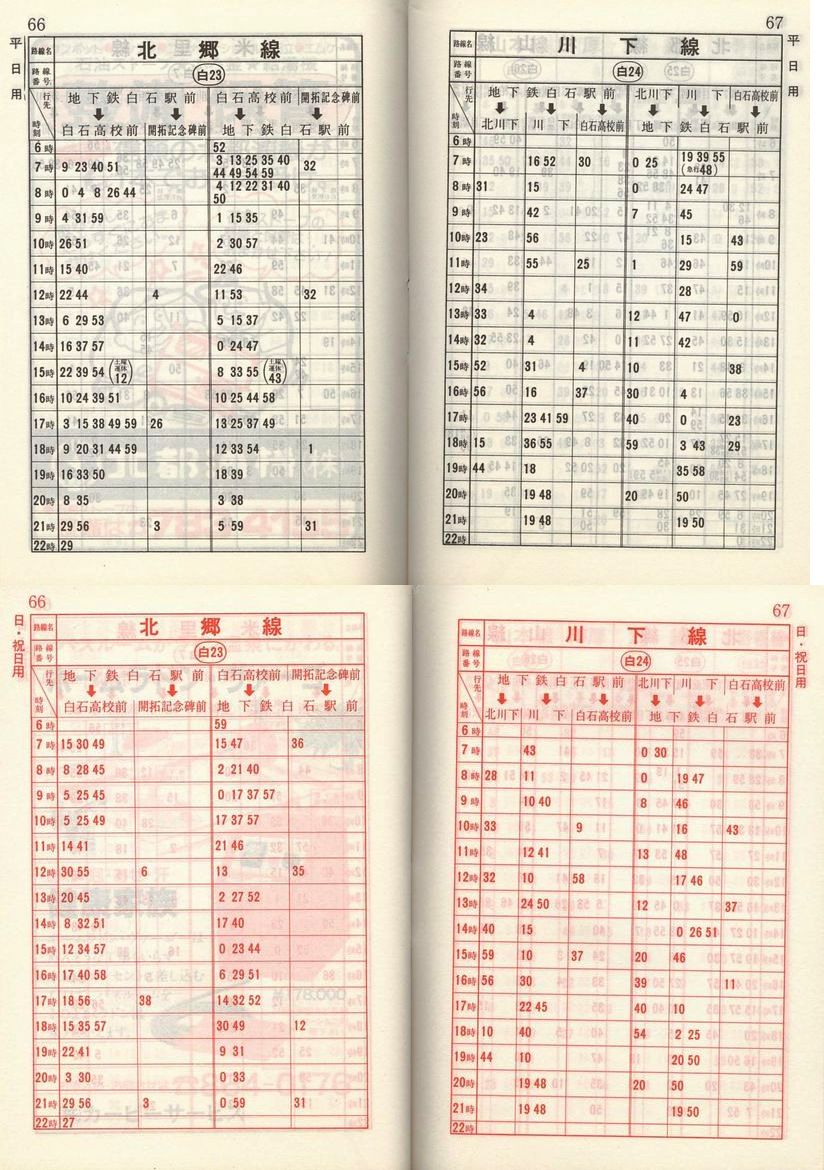 66
平日用
路線名 北郷線
路線番号 白23
行先 時刻 地下鉄白石駅前 白石高校前 開拓記念碑前
白石高校前 開拓記念碑前 地下鉄白石駅前
6時 52
7時 9 23 40 51 3 13 25 35 40 32
44 49 54 59
8時 0 4 8 26 44 4 12 22 31 40
50
9時 4 31 59 1 15 35
10時 26 51 2 30 57
11時 15 40 22 46
12時 22 44 4 11 53 32
13時 6 29 53 5 15 37
14時 16 37 57 0 24 47
15時 22 39 54 (土曜運休12) 8 33 55 (土曜運休43)
16時 10 24 39 51 10 25 44 58
17時 3 15 38 49 59 26 13 25 37 49
18時 9 20 31 44 59 12 33 54 1
19時 16 33 50 18 39
20時 8 35 3 38
21時 29 56 3 5 59 31
22時 29
67
平日用
路線名 川下線
路線番号 白24
行先 時刻 地下鉄白石駅前 北川下 川下 白石高校前
北川下 川下 白石高校前 地下鉄白石駅前
6時
7時 16 52 30 0 25 19 39 55
(急行48)
8時 31 15 0 24 47
9時 42 7 45
10時 23 56 15 43
11時 55 25 1 29 59
12時 34 28
13時 33 4 12 47 0
14時 32 4 11 42
15時 52 31 4 10 38
16時 56 16 37 30 4
17時 23 41 59 40 0 23
18時 15 36 55 59 3 43 29
19時 44 18 35 58
20時 19 48 20 50
21時 19 48 19 50
22時
66
日・祝日用
路線名 北郷線
路線番号 白23
行先 時刻 地下鉄白石駅前 白石高校前 開拓記念碑前
白石高校前 開拓記念碑前 地下鉄白石駅前
6時 59
7時 15 30 49 15 47 36
8時 8 28 45 2 21 40
9時 5 25 45 0 17 37 57
10時 5 25 49 17 37 57
11時 14 41 21 46
12時 30 55 6 13 35
13時 20 45 2 27 52
14時 8 32 51 17 40
15時 12 34 57 0 23 44
16時 17 40 58 6 29 51
17時 18 56 38 14 32 52
18時 15 35 57 30 49 12
19時 22 41 9 31
20時 3 30 0 33
21時 29 56 3 0 59 31
22時 27
67
日・祝日用
路線名 川下線
路線番号 白24
行先 時刻 地下鉄白石駅前 北川下 川下 白石高校前
北川下 川下 白石高校前 地下鉄白石駅前
6時
7時 43 0 30
8時 28 11 0 19 47
9時 10 40 8 46
10時 33 9 16 43
11時 12 41 13 48
12時 32 10 58 17 46
13時 24 50 12 37
14時 40 15 0 26 51
15時 59 10 37 20 46
16時 56 30 39 11
17時 22 45 40 10
18時 10 40 54 2 25
19時 44 10 20 50
20時 19 48 20 50
21時 19 48 19 50
22時